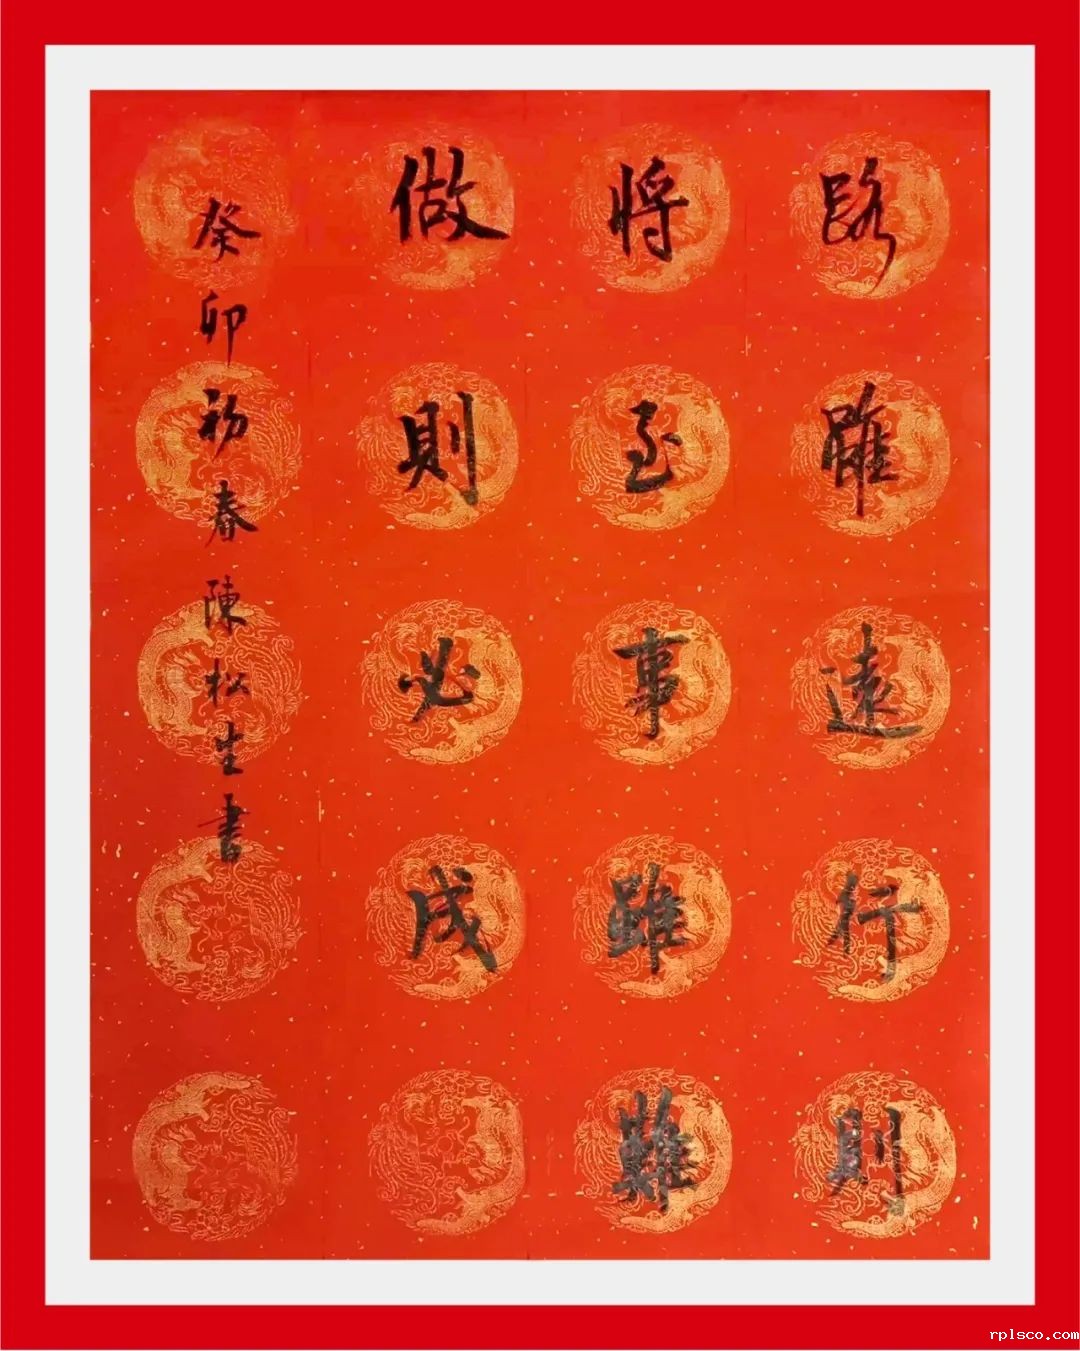 路雖遠行則
將至事雖難
做則必成
癸卯初春陳松生書
rplsco.com